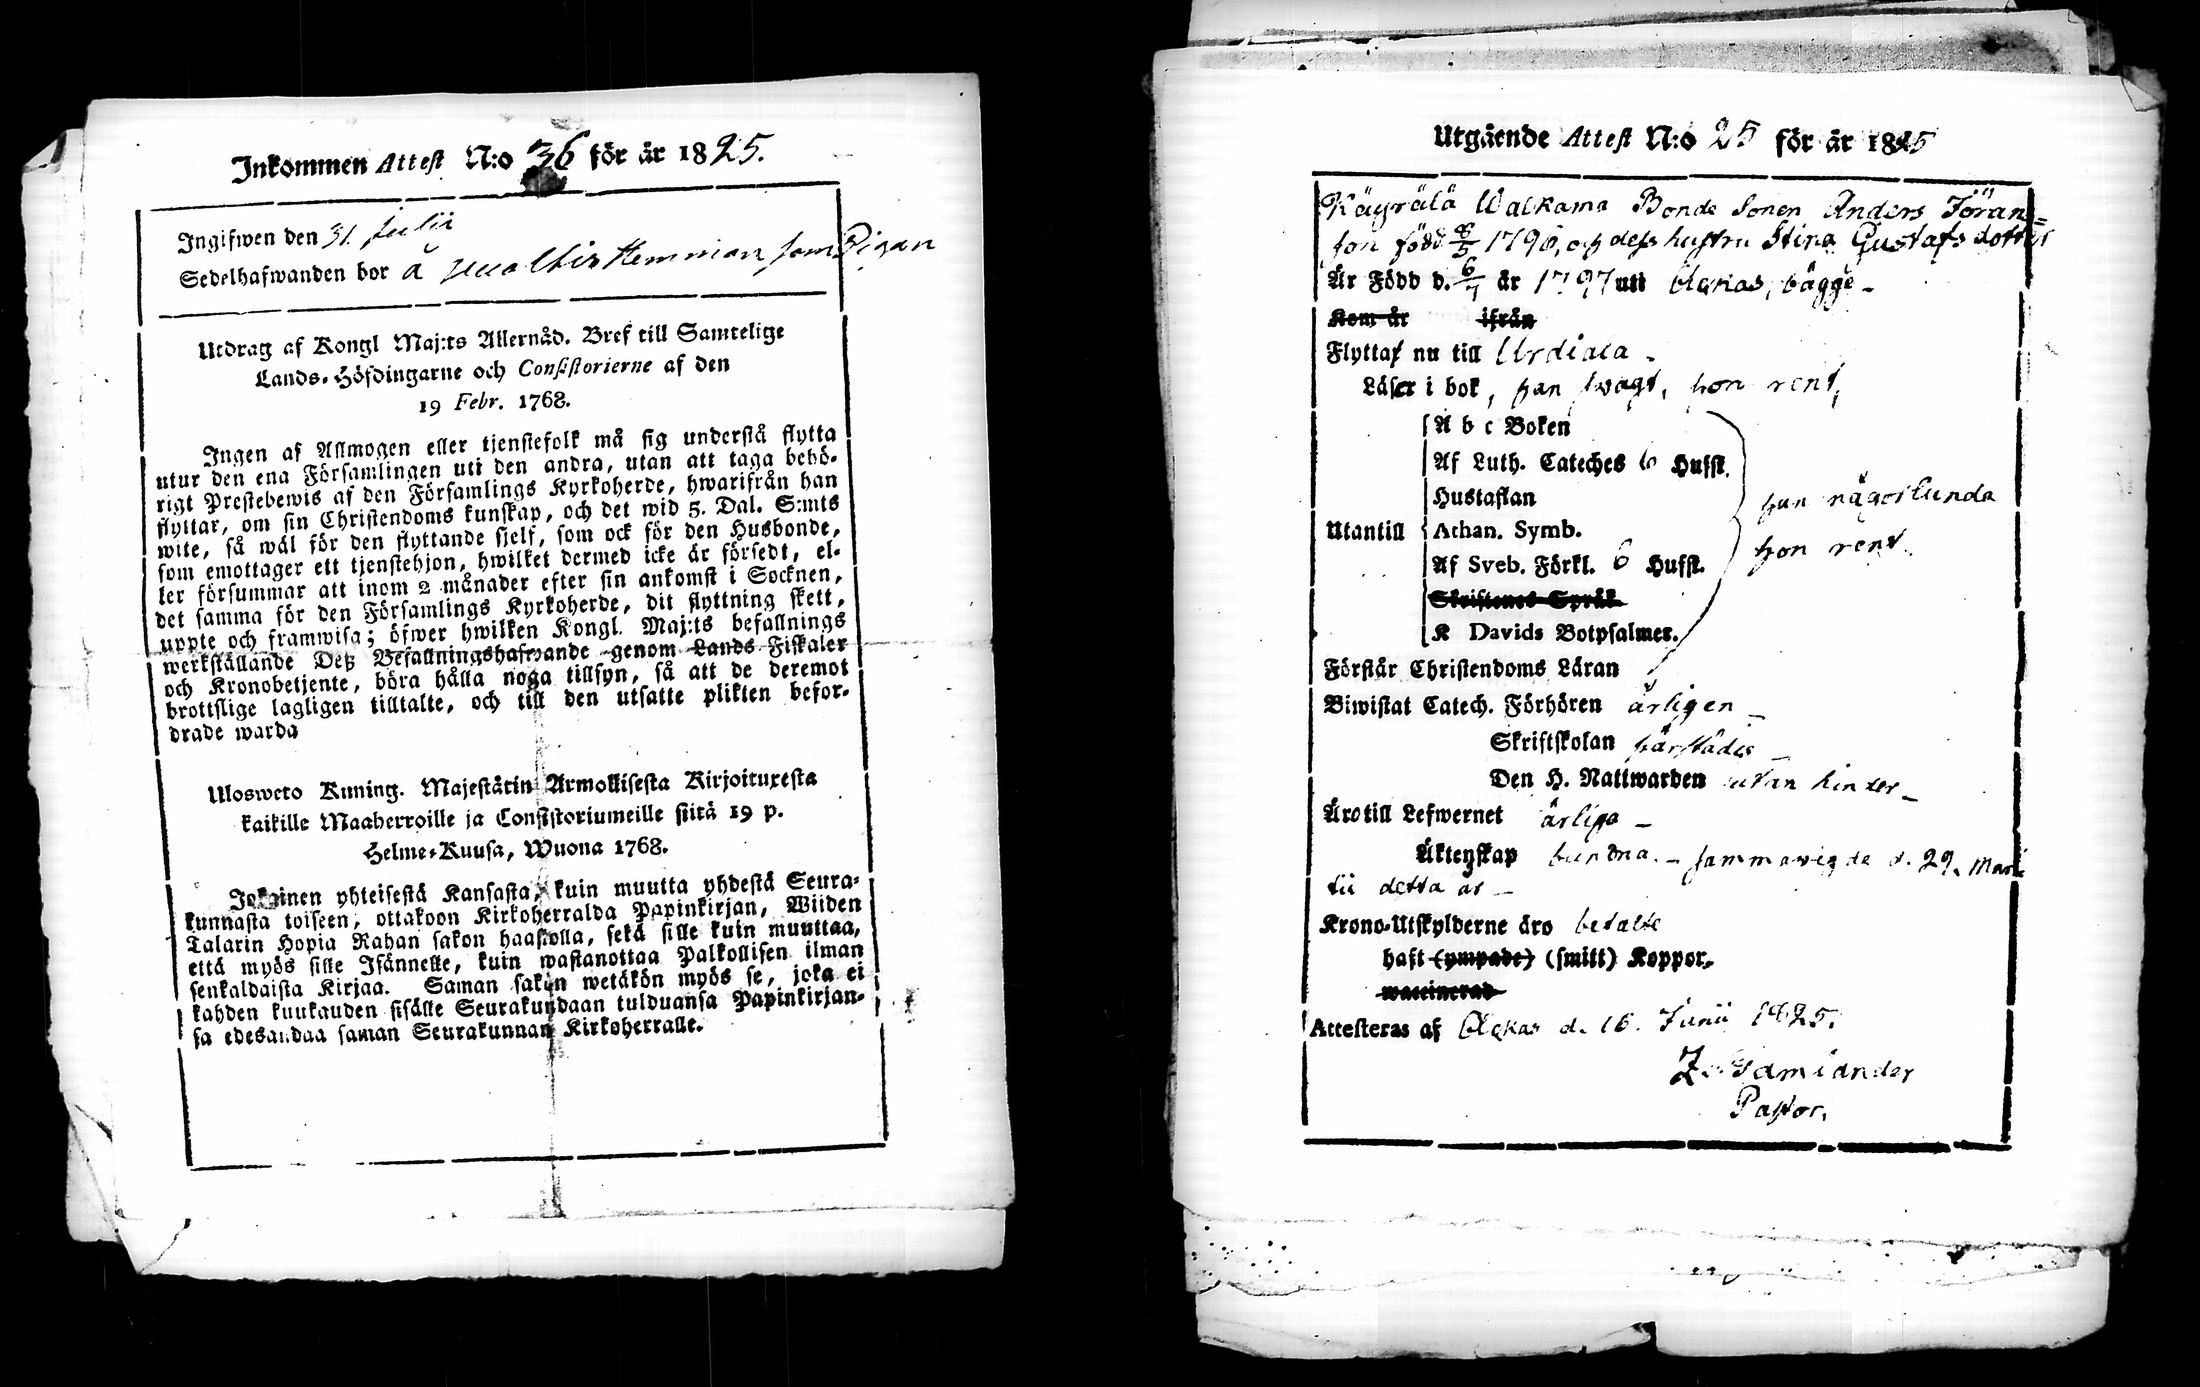 Inkommen Attest N:o 36 för år 1825.
Ingifwen den 31 Julii
Sedelhafwanden bor å Hemman som Pigan
Utdrag af Kongl Maj:ts Allernåd. Bref till Samtelige
Lands-Höfdingarne och Consistorierne af den
19 Febr. 1768.
Ingen af Allmogen eller tjenstefolk må sig understå flytta
utur den ena Församlingen uti den andra, utan att taga behö-
rigt Prestebewis af den Församlings Kyrkoherde, hwarifrån han
flyttar, om sin Christendoms kunskap, och det wid 5. Dal. S:mts
wite, så wäl för den flyttande sjelf, som ock för den Husbonde,
som emottager ett tjenstehjon, hwilket dermed icke är försedt, el-
ler försummar att inom 2 månader efter sin ankomst i Socknen,
det samma för den Församlings Kyrkoherde, dit flyttning skett,
uppte och framwisa; öfwer hwilken Kongl. Maj:ts befallnings
werkställande Deß Befallningshafwande genom Lands Fiskaler
och Kronobetjente, böra hålla noga tillsyn, så att de deremot
brottslige lagligen tilltalte, och till den utsatte plikten befor-
drade warda
Ulosweto Kuning. Majestätin Armollisesta Kirjoituxesta
kaikille Maaherroille ja Consistoriumeille siitä 19 p.
Helme-Kuusa, Wuona 1768.
Jokainen yhteisestä Kansasta, kuin muutta yhdestä Seura-
kunnasta toiseen, ottakoon Kirkoherralda Papinkirjan, Wiiden
Talarin Hopia Rahan sakon haastolla, sekä sille kuin muuttaa,
että myös sille Isännelle, kuin wastanottaa Palkollisen ilman
senkaldaista Kirjaa. Saman sakon wetäkön myös se, joka ei
kahden kuukauden sisälle Seurakundaan tulduansa Papinkirjan-
sa edesandaa saman Seurakunnan Kirkoherralle.
Utgående Attest N:o 25 för år 1825
Käyrälä Walkama Bonde Sonen Anders Jöran-
son född 8/5 1796, och dess hustru Stina Gustafs dotter
Är Född d. 6/7 år 1797 uti Ackas, bägge -
Kom år ifrån
Flytta nu till Urdiala -
Läser i bok, han swagt, hon rent,
A b c Boken
Af Luth. Cateches 6 Hufst.
Hustaflan
Utantill Athan. Symb.
Af Sveb. Förkl. 6 Hufst.
Skriftenes Språk
K Davids Botpsalmer.
han någorlunda
hon rent.
Förstår Christendoms Läran
Biwistat Catech. Förhören årligen -
Skriftskolan härstädes -
Den H. Nattwarden utan hinder -
Äro till Lefwernet ärliga -
Äktenskap bundna. - sammanvigde d. 29. Mar-
tii detta år -
Krono-Utskylderne äro betalte
haft (ympade) (smitt) Koppor,
waccinerad
Attesteras af Ackas d. 16. Junii 1825.
Z. Gamlander
Pastor.